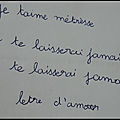 je t'aime métresse
te laisserai jamai
te laisserai jama
letre d'amour